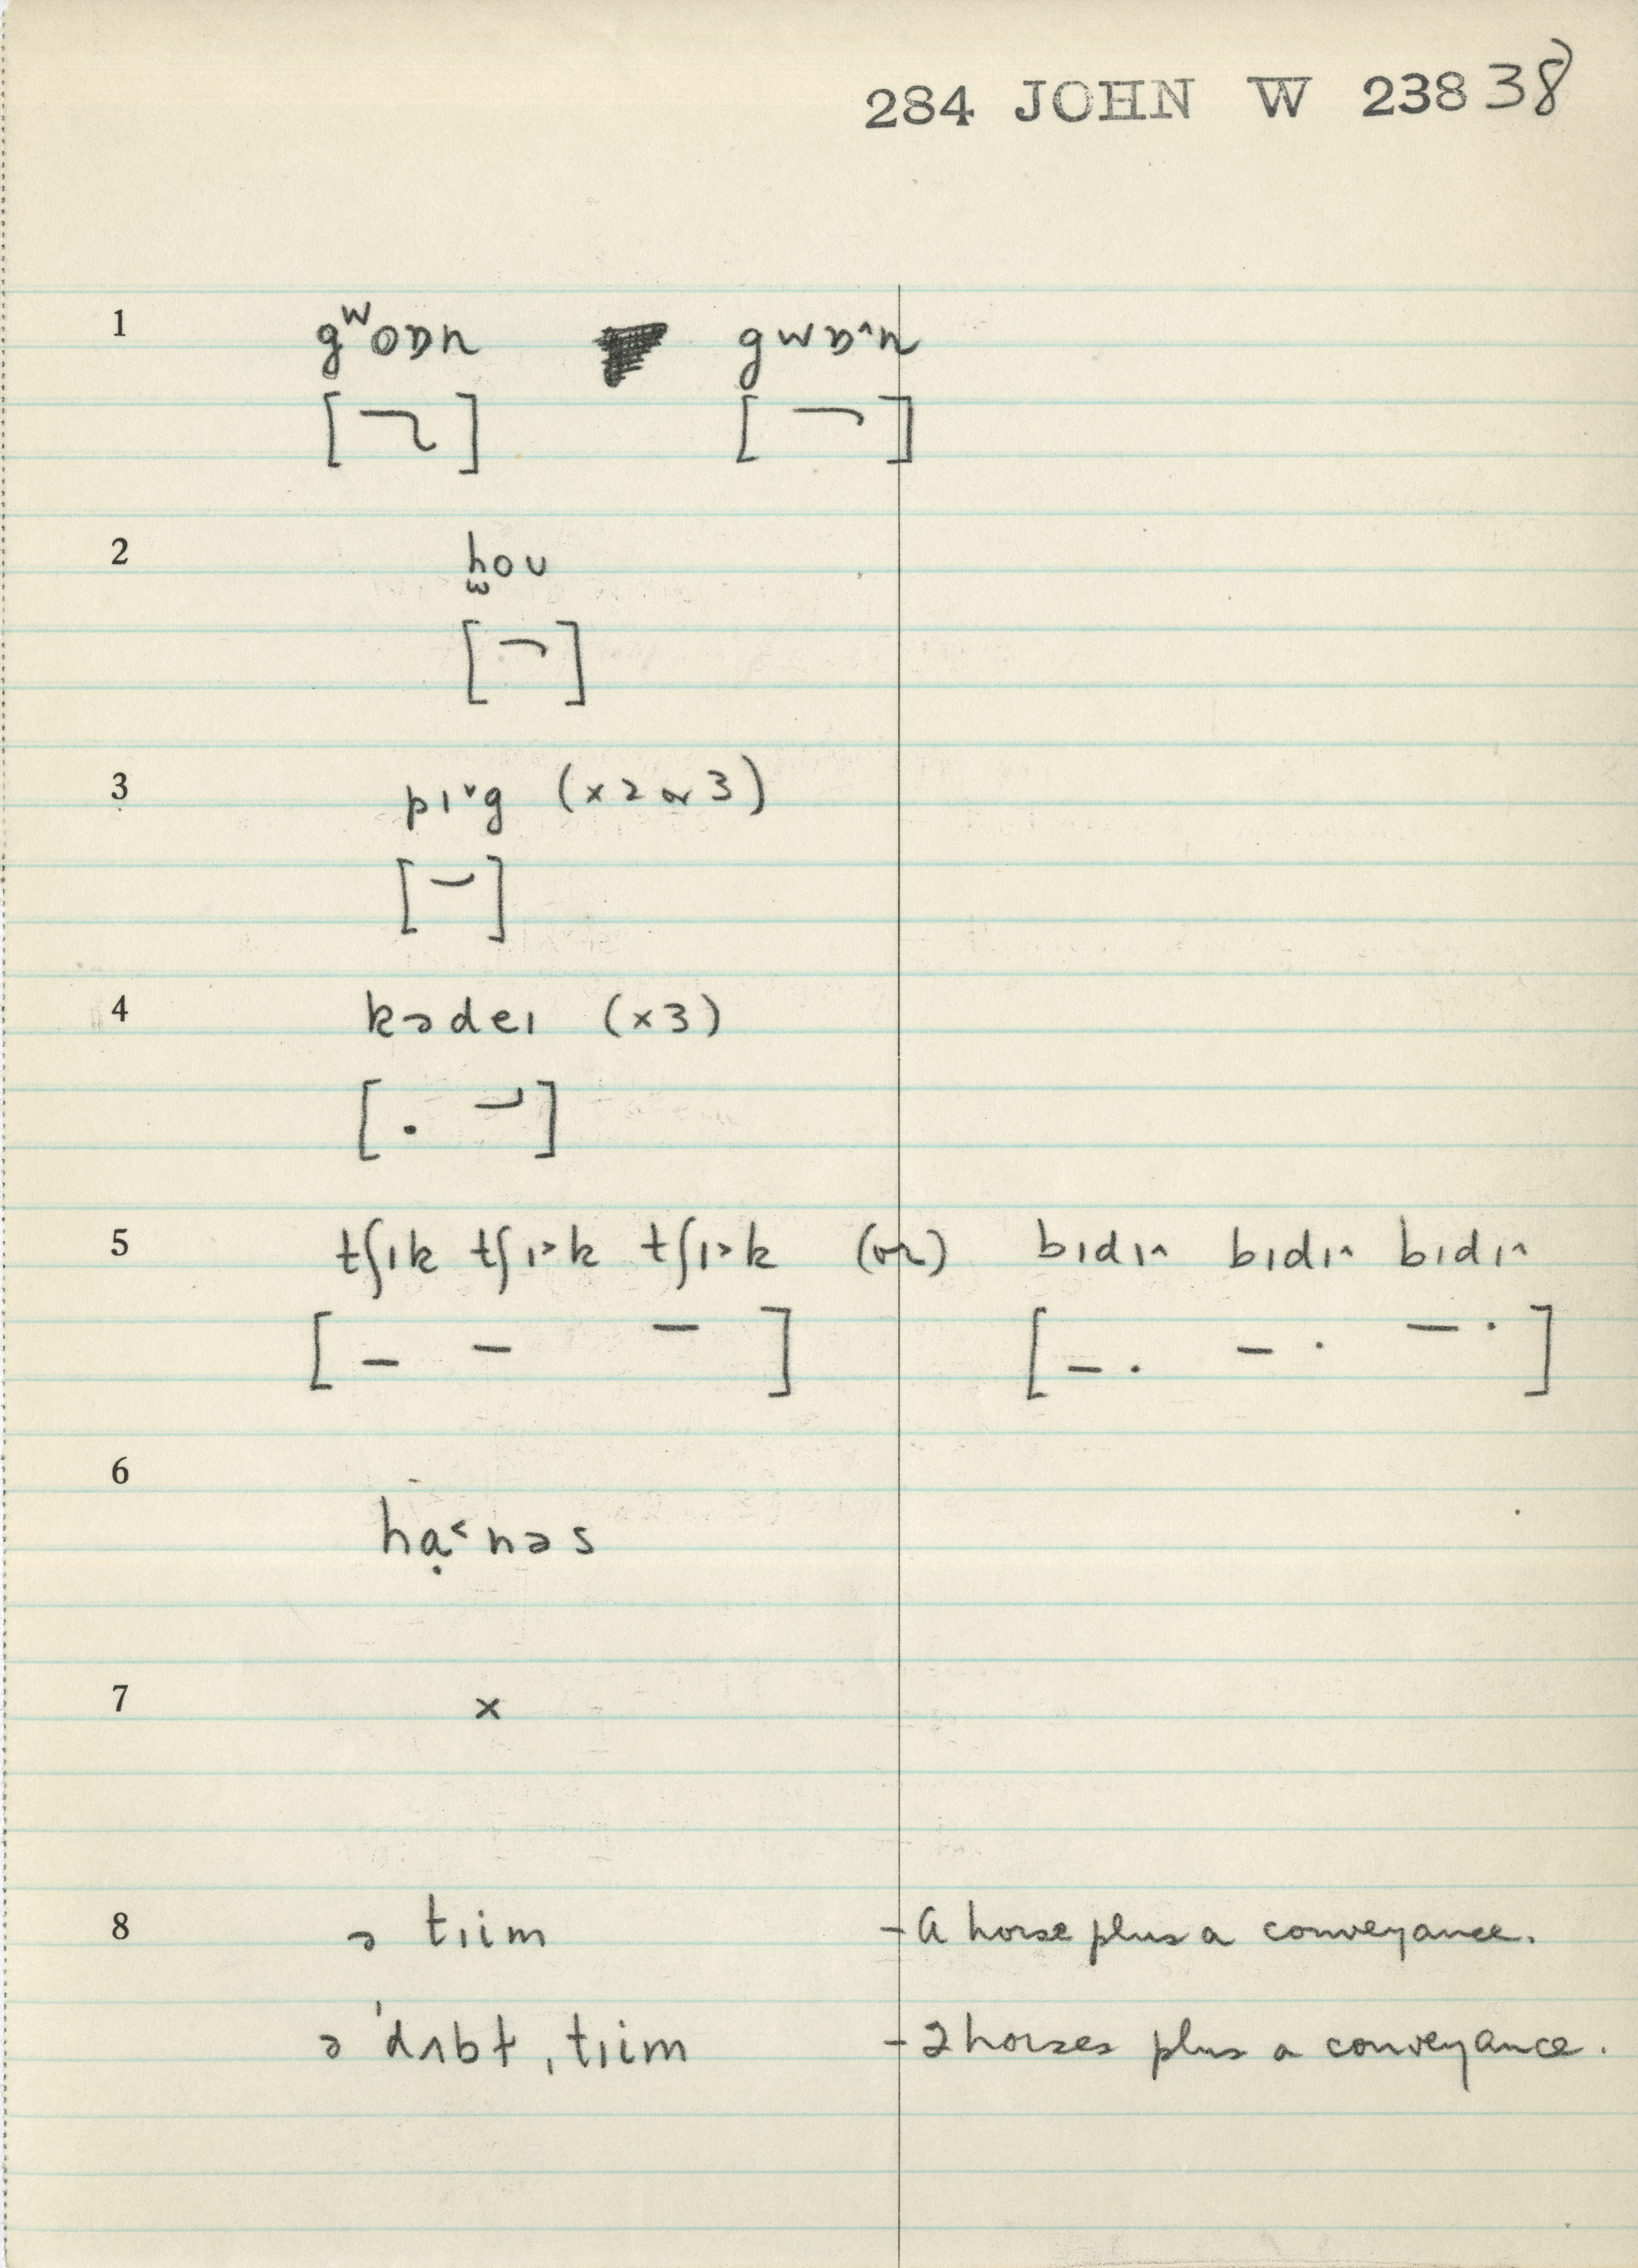 284 JOHN W 238 38
1 gʷoɒn gwɒ˄n
2 hou
3 pɪ˅g (x2 or 3)
4 kədeɪ (x3)
5 tʃɪk tʃɪ˃k tʃɪ˃k (or) bɪdɪ˄ bɪdɪ˄ bɪdɪ˄
6 hạ˂nəs
7 x
8 ə tɪim - A horse plus a conveyance.
ə ˈdʌbt ˌtɪim - 2 horses plus a conveyance.